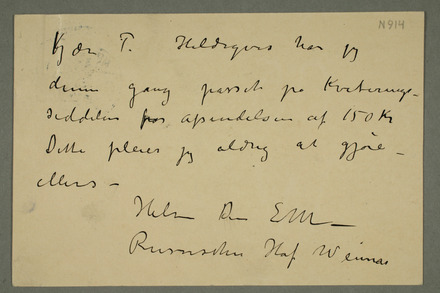 N914
Kjære T. Heldigvis har jeg
denne gang passet på Kvitterings-
seddelen for afsendelsen af 150 Kr
Dette pleier jeg aldrig at gjøre –
ellers –
Hilsen Din EM –
Russischer Hof Weimar